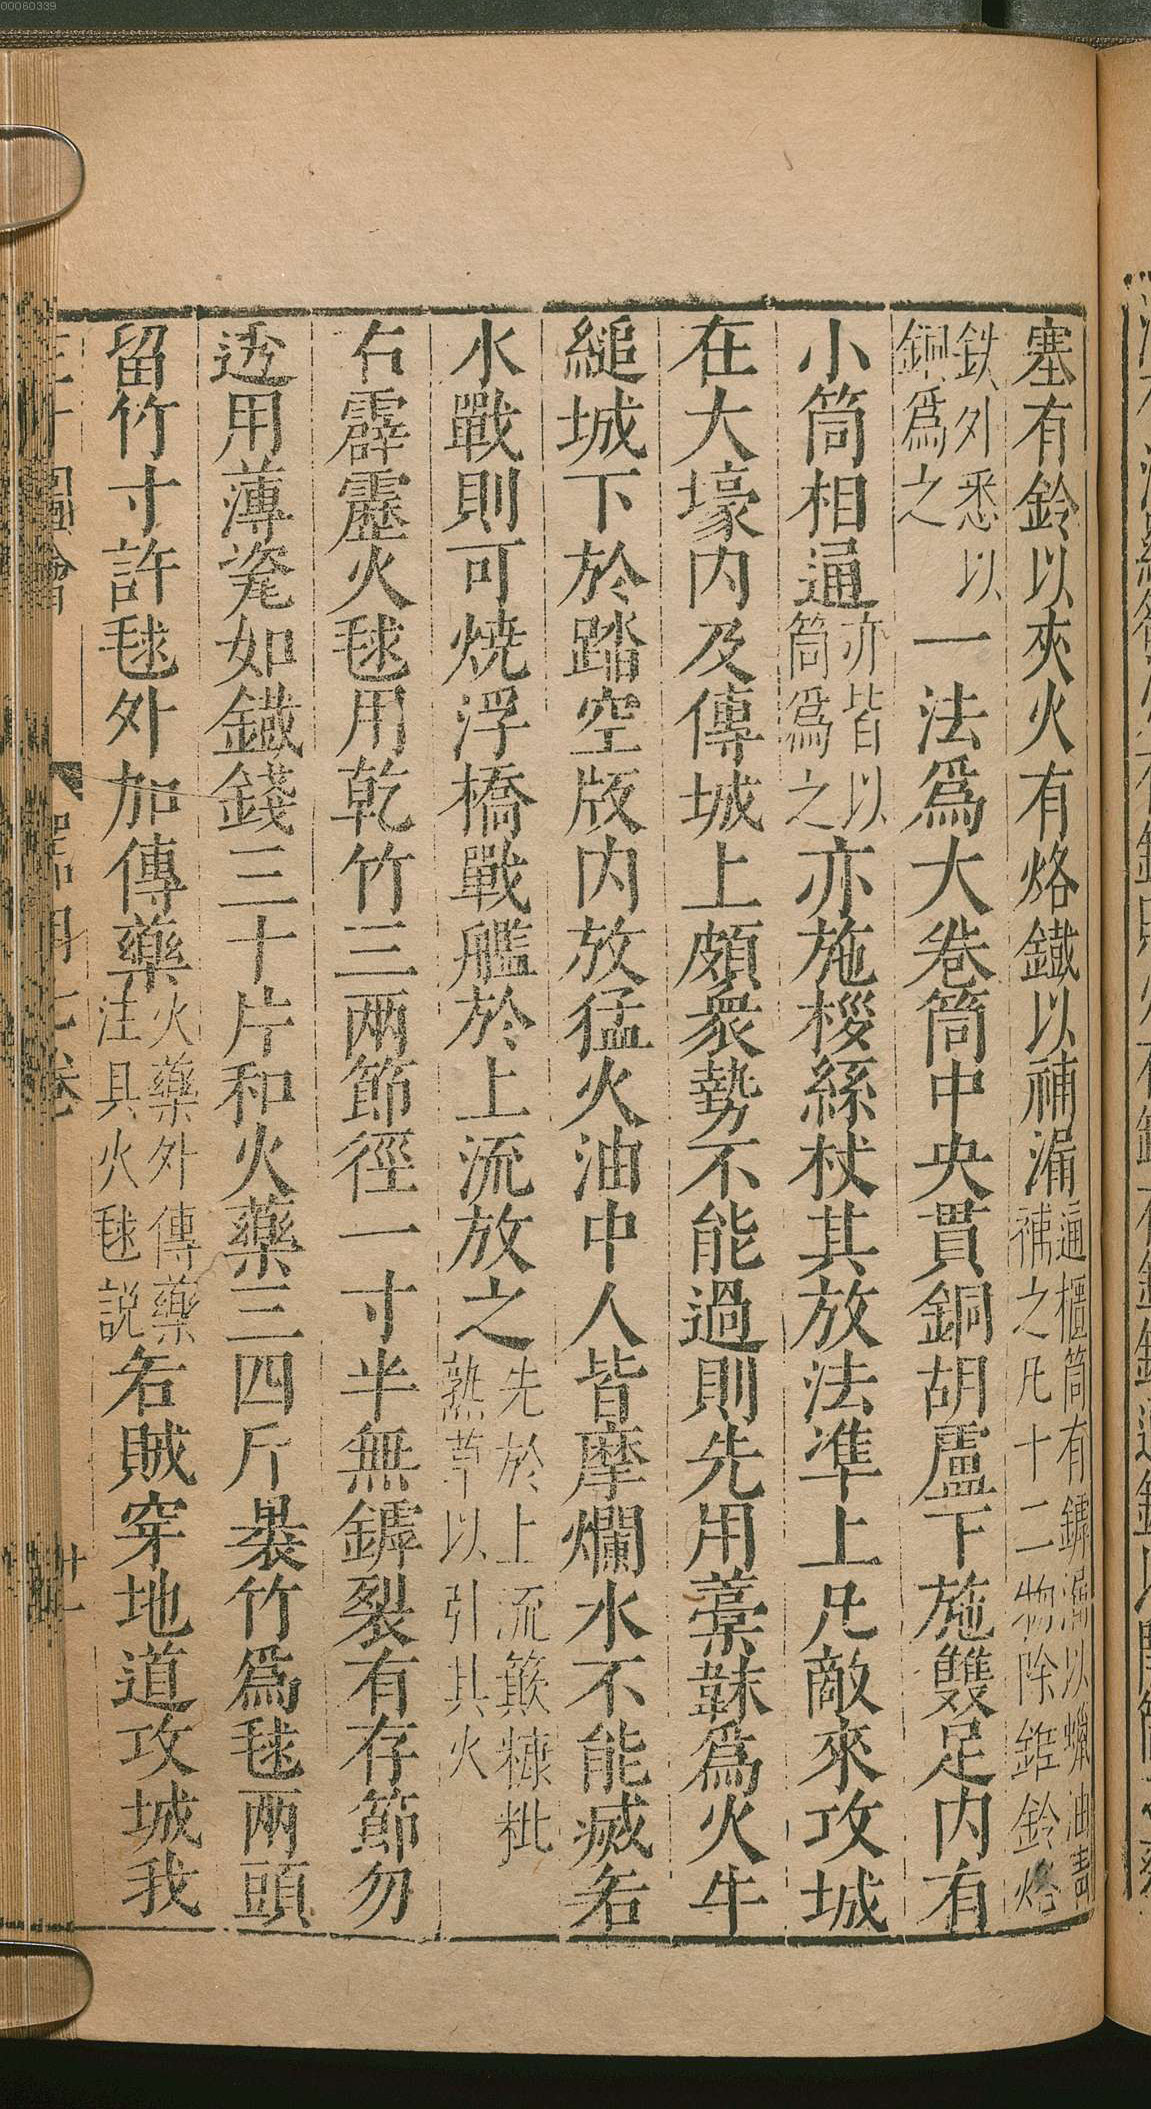 塞有鈴以夾火有烙鐵以補漏通櫃筒有鏬漏以蠟油青補之凡十二物除錐鈴烙
鉄外悉以銅爲之一法爲大卷筒中央貫銅胡盧下施雙足内有
小筒相通亦皆以筒爲之亦施椶絲杖其放法準上凡敵來攻城
在大壕内及傳城上頗衆勢不能過則先用藁靺爲火牛
縋城下於踏空版内放猛火油中人皆摩爛水不能滅若
水戰則可燒浮橋戰艦於上流放之先於上流簸糠粃熟草以引其火
右霹靂火毬用乾竹三兩節徑一寸半無鏬裂有存節勿
透用薄瓷如鐵錢三十片和火藥三四斤裹竹爲毬兩頭
留竹寸許毬外加傳藥火藥外傳藥注具火毬説若賊穿地道攻城我
圖會 器用七卷 廿一
00060339